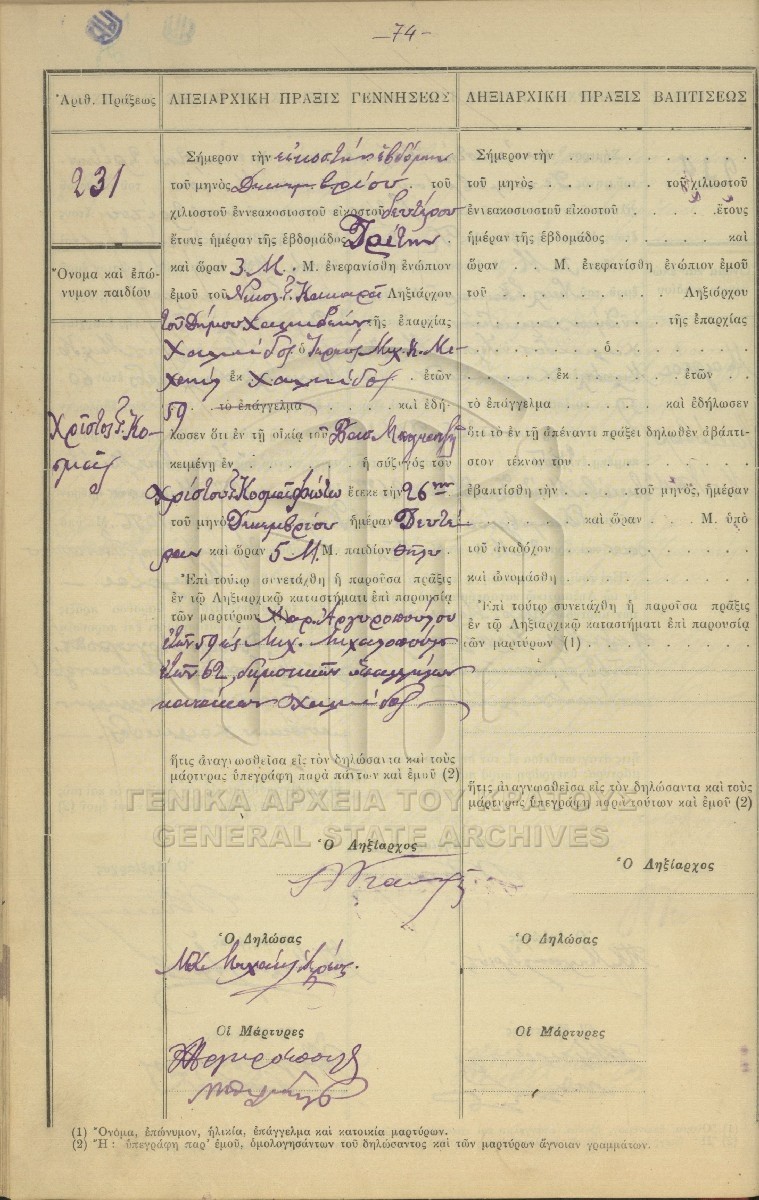 —74—
Ἀριθ. Πράξεως
ΛΗΞΙΑΡΧΙΚΗ ΠΡΑΞΙΣ ΓΕΝΝΗΣΕΩΣ
ΛΗΞΙΑΡΧΙΚΗ ΠΡΑΞΙΣ ΒΑΠΤΙΣΕΩΣ
231
Ὄνομα καὶ ἐπώ-
νυμον παιδίου
Χρῖστος Κο-
σμᾶς
Σήμερον τὴν εἰκοστήν ἑβδόμην
τοῦ μηνὸς Δεκεμβρίου . τοῦ
χιλιοστοῦ ἐννεακοσιοστοῦ εἰκοστοῦ δευτέρου
ἔτους ἡμέραν τῆς ἑβδομάδος Τρίτην .
καὶ ὥραν 3 Μ. . Μ. ἐνεφανίσθη ἐνώπιον
ἐμοῦ τοῦ Νικολ. Ληξιάρχου
τοῦ Δήμου Χαλκιδέων τῆς ἐπαρχίας
Χαλκίδος ὁ Ἱερεύς Μιχ. Κ. Μι-
χαήλ ἐκ Χαλκίδος . ἐτῶν
59 . τὸ ἐπάγγελμα καὶ ἐδή-
λωσεν ὅτι ἐν τῇ οἰκίᾳ τοῦ Βασ.
κειμένῃ ἐν . . . . . . . ἡ σύζυγος τοῦ
Χρίστου Κοσμᾶ Φώτω ἔτεκε τὴν 26ην
τοῦ μηνὸς Δεκεμβρίου ἡμέραν Δευτέ-
ραν καὶ ὥραν 5 Μ. Μ. παιδίον θῆλυ
Ἐπὶ τούτῳ συνετάχθη ἡ παροῦσα πρᾶξις
ἐν τῷ Ληξιαρχικῷ καταστήματι ἐπὶ παρουσίᾳ
τῶν μαρτύρων Χαρ. Ἀργυροπούλου
ἐτῶν 59 καὶ Μιχ. Μιχαλοπούλου
ἐτῶν 62, δημοτικῶν ὑπαλλήλων
κατοίκων Χαλκίδος
ἥτις ἀναγνωσθεῖσα εἰς τὸν δηλώσαντα καὶ τοὺς
μάρτυρας ὑπεγράφη παρὰ πάντων καὶ ἐμοῦ (2)
Ὁ Ληξίαρχος
Ὁ Δηλώσας
Μ. Κ. Μιχαήλ Ἱερεύς.
Οἱ Μάρτυρες
Σήμερον τὴν . . . . . . . . . .
τοῦ μηνὸς . . . . . . . τοῦ χιλιοστοῦ
ἐννεακοσιοστοῦ εἰκοστοῦ . . . . . . ἔτους
ἡμέραν τῆς ἑβδομάδος . . . . . . . καὶ
ὥραν . . Μ. ἐνεφανίσθη ἐνώπιον ἐμοῦ
τοῦ . . . . . . . . . . Ληξιάρχου
. . . . . . . . . . τῆς ἐπαρχίας
. . . . . . . . ὁ . . . . . . .
. . . . . . ἐκ . . . . . . ἐτῶν . .
τὸ ἐπάγγελμα . . . . . καὶ ἐδήλωσεν
ὅτι τὸ ἐν τῇ ἀπέναντι πράξει δηλωθὲν ἀβάπτι-
στον τέκνον του . . . . . . . . . .
ἐβαπτίσθη τὴν . . . . . τοῦ μηνός, ἡμέραν
. . . . . . . καὶ ὥραν . . . Μ. ὑπὸ
τοῦ ἀναδόχου . . . . . . . . . .
καὶ ὠνομάσθη . . . . . . . . . .
Ἐπὶ τούτῳ συνετάχθη ἡ παροῦσα πρᾶξις
ἐν τῷ Ληξιαρχικῷ καταστήματι ἐπὶ παρουσίᾳ
τῶν μαρτύρων (1) . . . . . . . . .
ἥτις ἀναγνωσθεῖσα εἰς τὸν δηλώσαντα καὶ τοὺς
μάρτυρας ὑπεγράφη παρὰ τούτων καὶ ἐμοῦ (2)
Ὁ Ληξίαρχος
Ὁ Δηλώσας
Οἱ Μάρτυρες
ΓΕΝΙΚΑ ΑΡΧΕΙΑ ΤΟΥ ΚΡΑΤΟΥΣ
GENERAL STATE ARCHIVES
(1) Ὄνομα, ἐπώνυμον, ἡλικία, ἐπάγγελμα καὶ κατοικία μαρτύρων.
(2) Ἤ : ὑπεγράφη παρ' ἐμοῦ, ὁμολογησάντων τοῦ δηλώσαντος καὶ τῶν μαρτύρων ἄγνοιαν γραμμάτων.